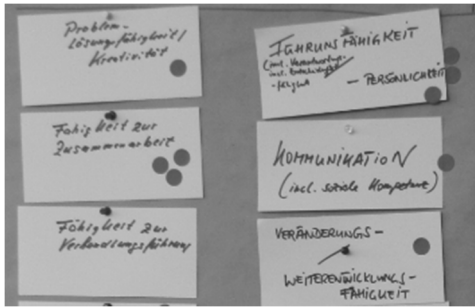 Problem-
Lösungsfähigkeit/
Kreativität
Fähigkeit zur
Zusammenarbeit
Fähigkeit zur
Verhandlungsführung
FÜHRUNSFÄHIGKEIT
(incl.
incl.
- PERSÖNLICHKEIT
KOMMUNIKATION
(incl. soziale Kompetenz)
VERÄNDERUNGS-
WEITERENTWICKLUNGS-
FÄHIGKEIT